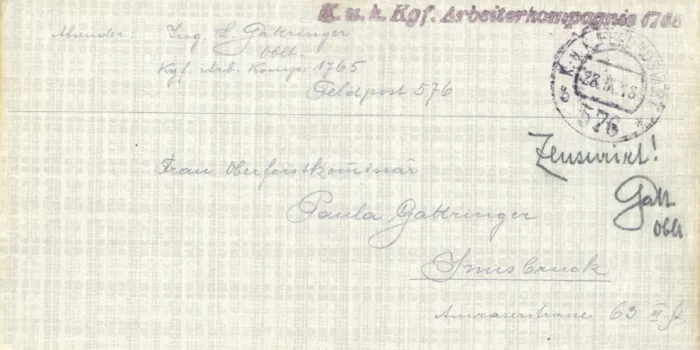 K. u. k. Kgf. Arbeiterkompagnie 1765
Absender: Ing. L. Gattringer
Oblt.
Kgf. Arb. Komp. 1765
Feldpost 576
K.u.K. FELDPOSTAMT
28.IX.18
576
Zensuriert!
Gatt
Oblt.
Frau Oberforstkomissär
Paula Gattringer
Innsbruck
Amraserstrasse 63 III St.